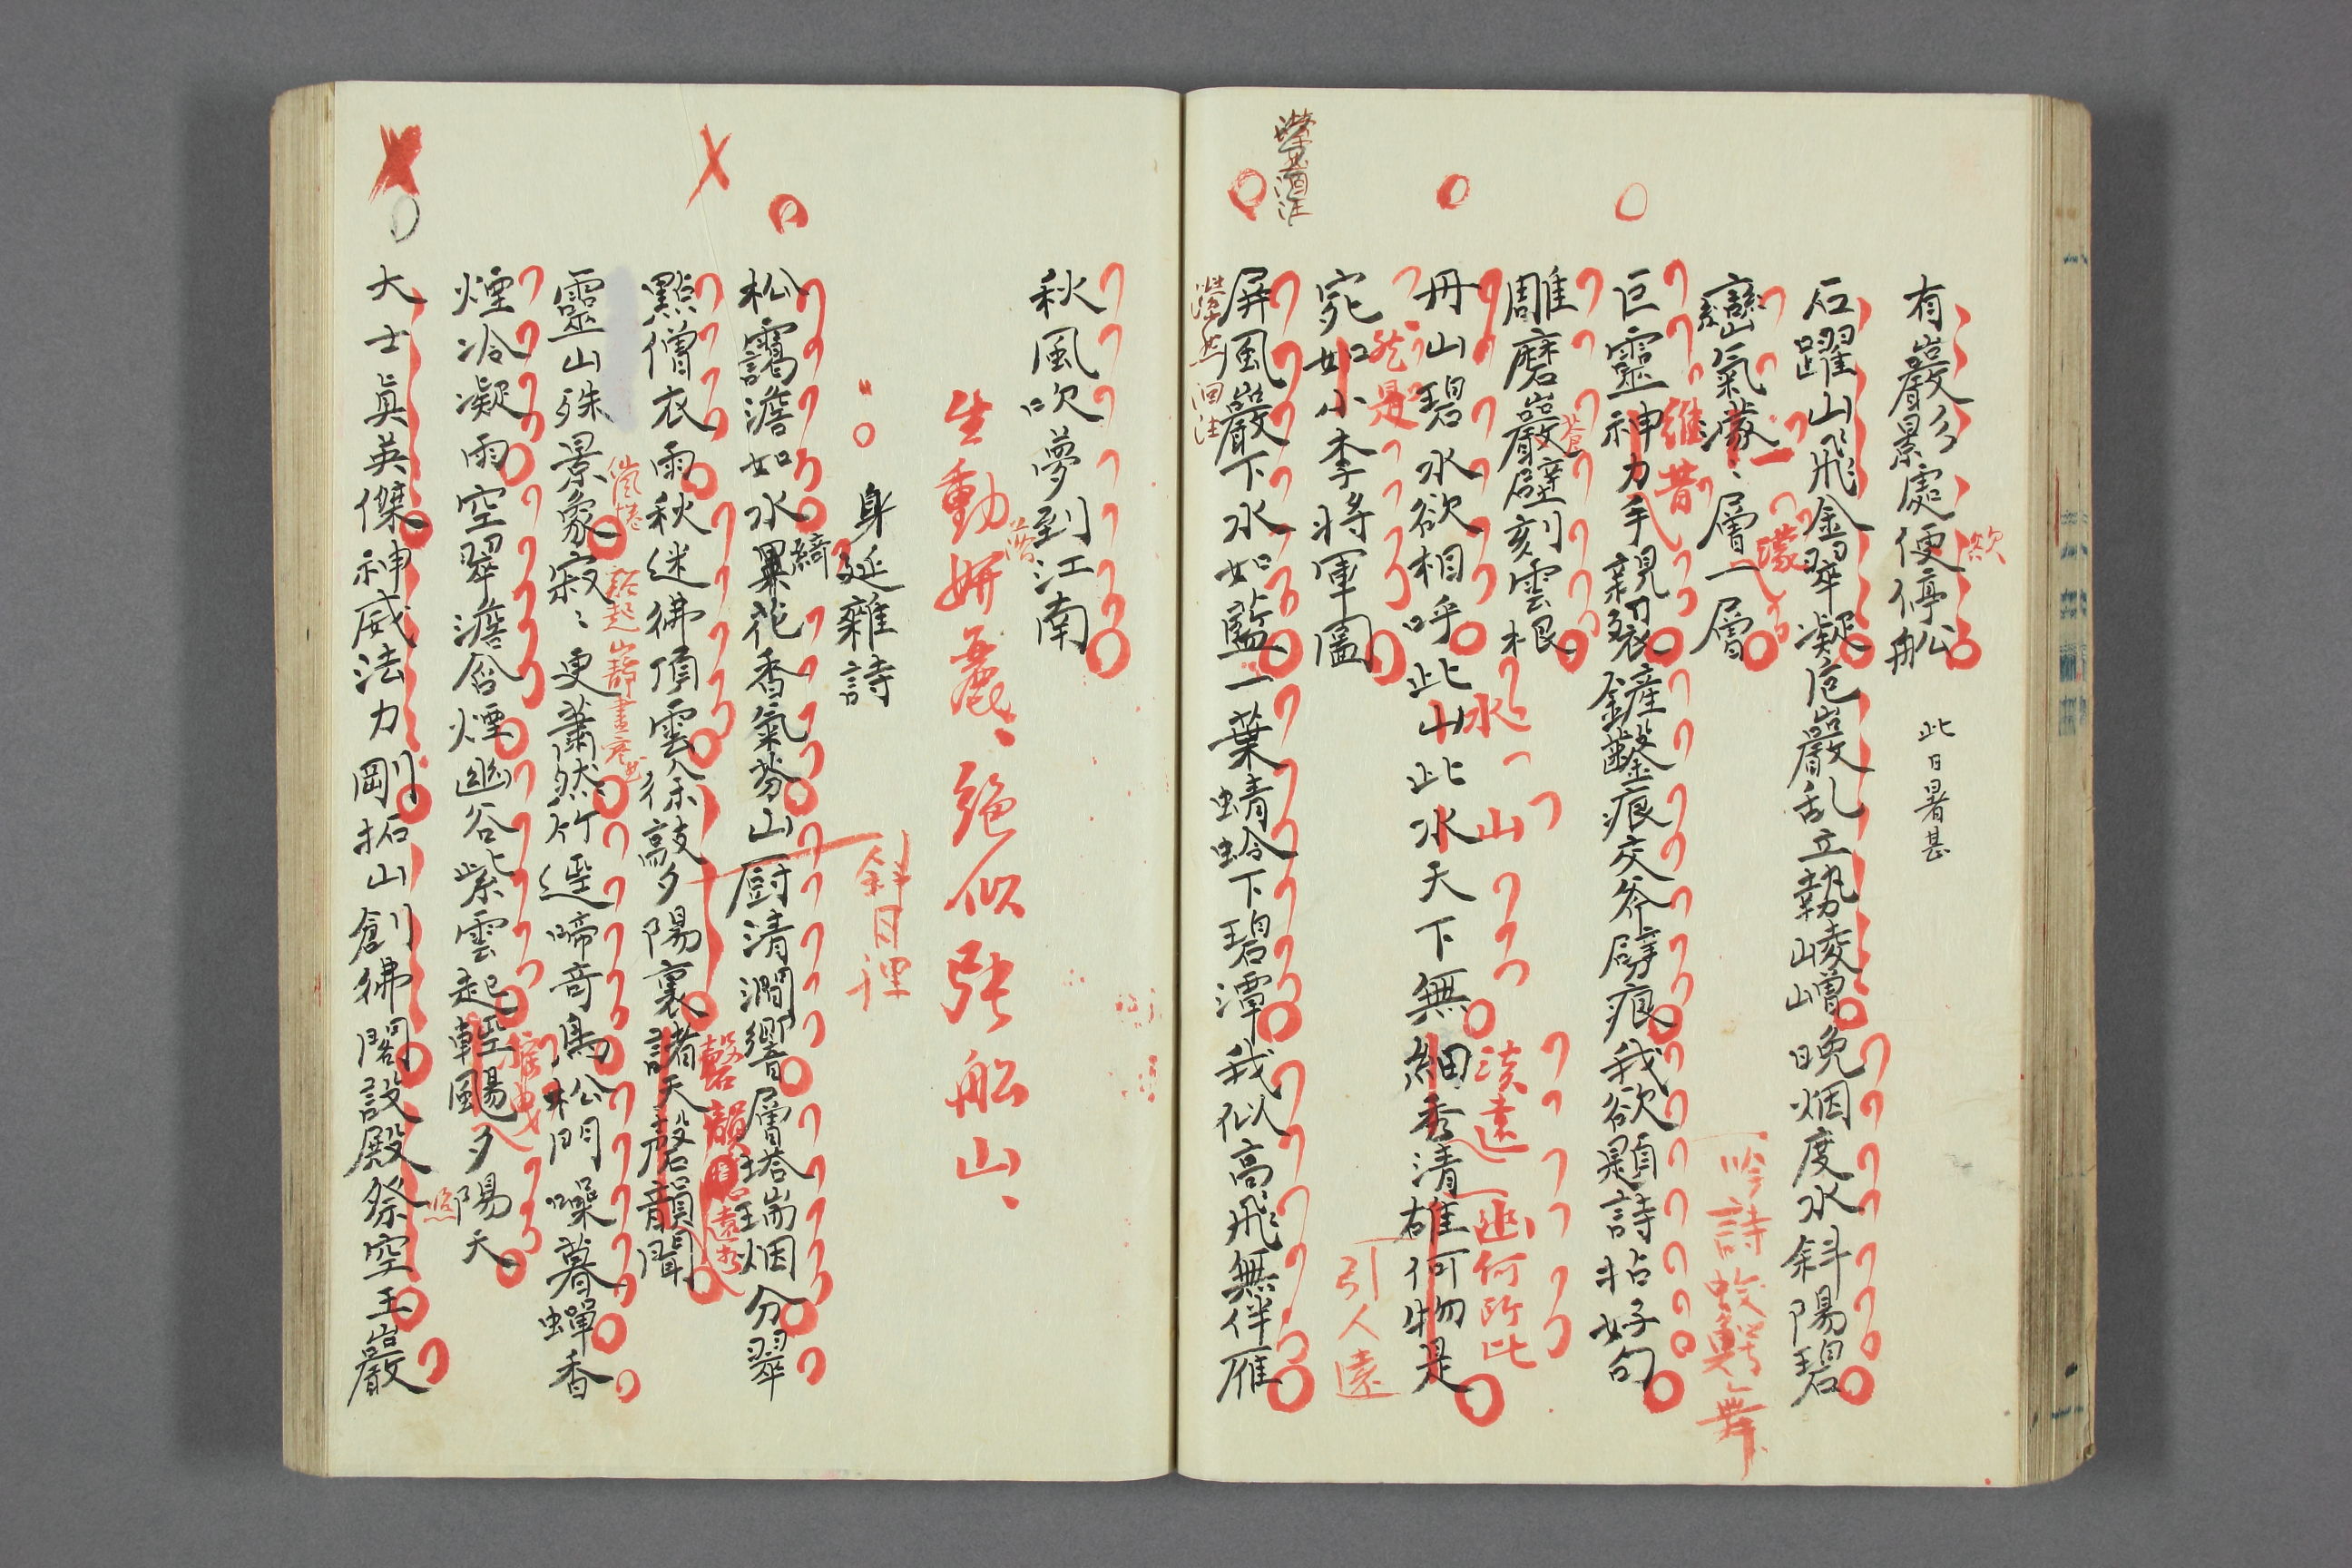 有巖多景處便停舩
欲
此日暑甚
石躍山飛金翠凝危巖乱立勢崚嶒晩烟度水斜陽碧
巒氣濛〻層一層
一濛
吟詩蛟鱷舞
巨靈神力手親裂鏟鑿痕交斧劈痕我欲題詩拈好句
維昔
雕磨巖壁刻雲根
蒼
丹山碧水欲相呼此山此水天下無細秀清雄何物是
水山
淡遠幽何所比
宛如小李將軍圖
於是
引人遠
屏風巖下水如藍一葉蜻蛉下碧潭我似高飛無伴雁
秋風吹夢到江南
落
生動姸麗、絕似張船山、
身延雜詩
松靄澹如水異花香氣芬山厨清澗響層塔端烟分翠
綺
斜日裡
點僧衣雨秋迷佛頂雲人徐敲夕陽裏諸天磬韻聞
磬韻
靈山殊景象寂〻更蕭然竹逕啼奇鳥松門噪暮蟬香
煙冷凝雨空翠澹含煙幽谷紫雲起輕颺夕陽天
大士眞英傑神威法力剛拓山創佛閣設殿祭空王巖